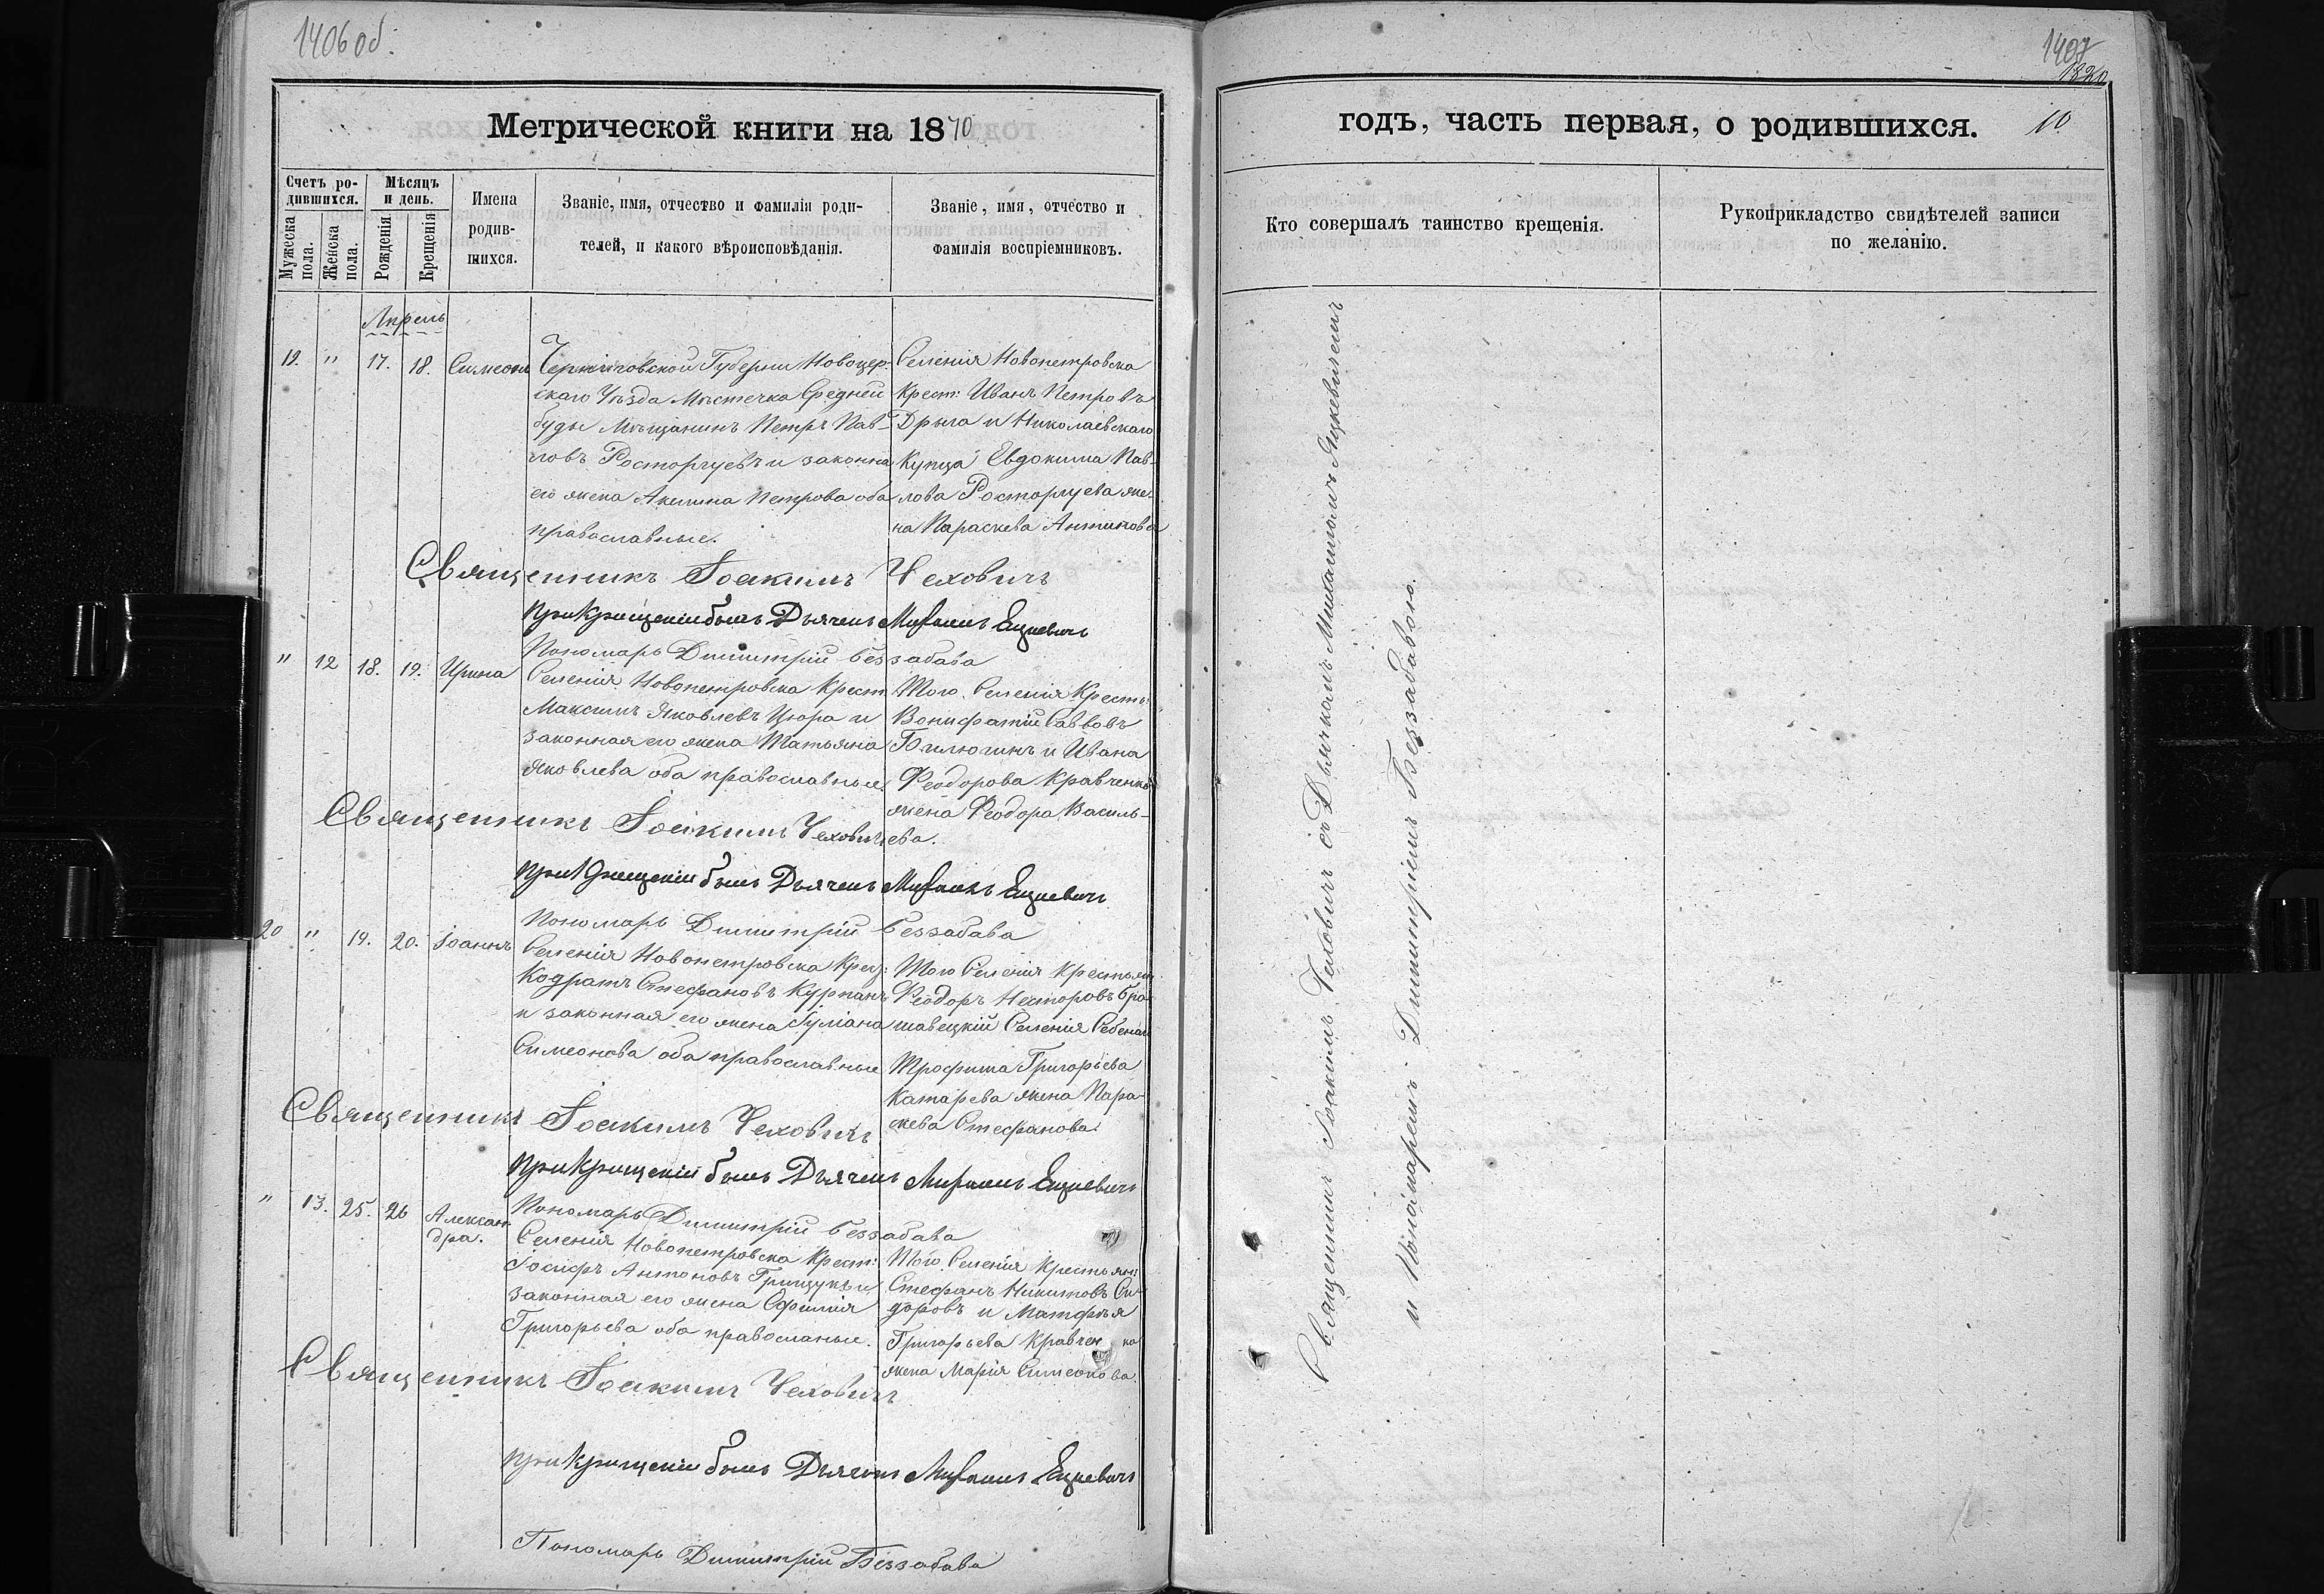 1406об.
Метрической книги на 1870
Счетъ родившихся.
Мѣсяцъ и день.
Имена родившихся.
Званіе, имя, отчество и фамилія родителей, и какого вѣроисповѣданія.
Званіе, имя, отчество и фамилія воспріемниковъ.
Мужеска пола.
Женска пола.
Рожденія.
Крещенія.
Апрель
19. " 17. 18. Симеонъ
Черниговской Губерніи Новозер-
скаго Уѣзда Мѣстечка Средней
буды Мѣщанинъ Петръ Пав-
ловъ Росторгуевъ и законна
его жена Акилина Петрова оба
православные.
Селенія Новопетровска
Крест: Иванъ Петровъ
Дрыга и Николаевскаго
Купца Евдокима Пав-
лова Росторгуева же-
на Параскева Антипова
Священникъ Іоакимъ Чеховичъ
При Крещеніи былъ Дьячекъ Михаилъ Яцкевичъ
Пономарь Димитрій Беззабава
" 12 18. 19. Ирина
Селенія Новопетровска Крест
Максимъ Яковлевъ Цюра и
законная его жена Татьяна
Яковлева оба православные
Того Селенія Кресть:
Вонифатій Савовъ
Билюгинъ и Ивана
Феодорова Кравченка
жена Феодора Василь-
ева.
Священникъ Іоакимъ Чеховичъ
При Крещеніи былъ Дьячекъ Михаилъ Яцкевичъ
Пономарь Димитрій Беззабава
20 " 19. 20. Іоаннъ
Селенія Новопетровска Крес:
Кодратъ Стефановъ Курпанъ
и законная его жена Іуліана
Симеонова оба православные
Того Селенія Крестьян
Феодоръ Несторовъ Бра-
шавецкій Селенія
Трофима Григорьева
Катарева жена Пара-
скева Стефанова
Священникъ Іоакимъ Чеховичъ
При Крещеніи былъ Дьячекъ Михаилъ Яцкевичъ
Пономарь Димитрій Беззабава
" 13. 25. 26 Алексан-
дра.
Селенія Новопетровска Крест:
Іосифъ Антоновъ Грищукъ и
законная его жена Ефимія
Григорьева оба православные.
Того Селенія Крестьян:
Стефанъ Никитовъ Си-
доровъ и Матфѣя
Григорьева Кравченка
жена Марія Симеонова.
Священникъ Іоакимъ Чеховичъ
При Крещеніи былъ Дьячекъ Михаилъ Яцкевичъ
Пономарь Димитрій Беззабава
1407
1820
годъ, часть первая, о родившихся. 10
Кто совершалъ таинство крещенія.
Рукоприкладство свидѣтелей записи по желанію.
Священникъ Іоакимъ Чеховичъ со Дьячкомъ Михаиломъ Яцкевичемъ
и Пономаремъ Димитріемъ Беззабавою.